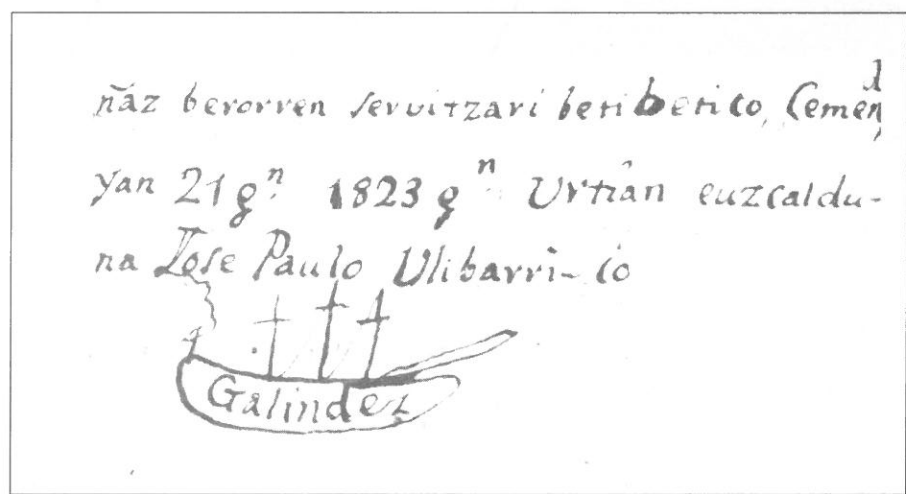 ñaz berorren servitzari beti betico, Cemend
yan 21 gn. 1823 gn. Urtîan euzcaldu-
na Jose Paulo Ulibarri-co
Galindez